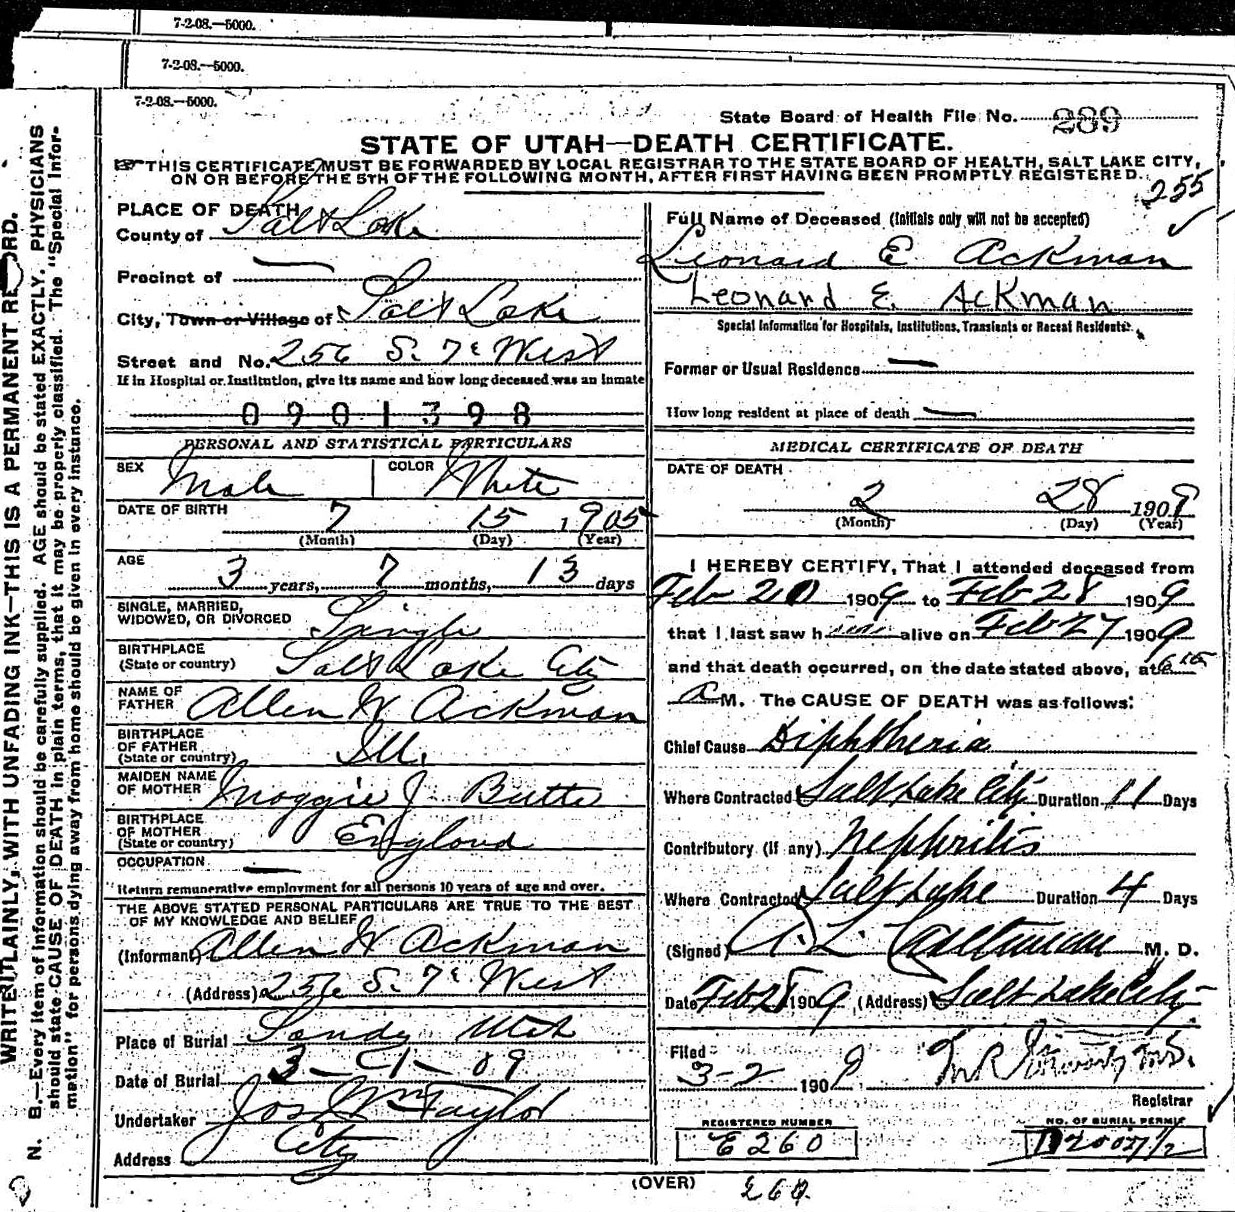 7-2-08.—5000.
7-2-08.—5000.
7-2-08.—5000.
State Board of Health File No. 289
STATE OF UTAH—DEATH CERTIFICATE.
☞ THIS CERTIFICATE MUST BE FORWARDED BY LOCAL REGISTRAR TO THE STATE BOARD OF HEALTH, SALT LAKE CITY,
ON OR BEFORE THE 5TH OF THE FOLLOWING MONTH, AFTER FIRST HAVING BEEN PROMPTLY REGISTERED.
255
WRITE PLAINLY, WITH UNFADING INK—THIS IS A PERMANENT RECORD.
N. B.—Every item of information should be carefully supplied. AGE should be stated EXACTLY. PHYSICIANS
should state CAUSE OF DEATH in plain terms, that it may be properly classified. The "Special Infor-
mation" for persons dying away from home should be given in every instance.
PLACE OF DEATH
County of Salt Lake
Precinct of —
City, Town or Village of Salt Lake
Street and No. 256 S. 7th West
If in Hospital or Institution, give its name and how long deceased was an inmate
0901398
PERSONAL AND STATISTICAL PARTICULARS
SEX Male COLOR White
DATE OF BIRTH 7 15 1905
(Month) (Day) (Year)
AGE 3 years, 7 months, 13 days
SINGLE, MARRIED,
WIDOWED, OR DIVORCED Single
BIRTHPLACE
(State or country) Salt Lake City
NAME OF
FATHER Allen W Ackman
BIRTHPLACE
OF FATHER
(State or country) Ill.
MAIDEN NAME
OF MOTHER Maggie J. Butte
BIRTHPLACE
OF MOTHER
(State or country) England
OCCUPATION —
Return remunerative employment for all persons 10 years of age and over.
THE ABOVE STATED PERSONAL PARTICULARS ARE TRUE TO THE BEST
OF MY KNOWLEDGE AND BELIEF
(Informant) Allen W Ackman
(Address) 256 S. 7th West
Place of Burial Sandy Utah
Date of Burial 3-1-09
Undertaker Jos Wm Taylor
Address City
Full Name of Deceased (Initials only will not be accepted)
Leonard E Ackman
Leonard E. Ackman
Special Information for Hospitals, Institutions, Transients or Recent Residents.
Former or Usual Residence —
How long resident at place of death —
MEDICAL CERTIFICATE OF DEATH
DATE OF DEATH
2 28 1909
(Month) (Day) (Year)
I HEREBY CERTIFY, That I attended deceased from
Feb 20 1909 to Feb 28 1909
that I last saw him alive on Feb 27 1909
and that death occurred, on the date stated above, at 6
A M. The CAUSE OF DEATH was as follows:
Chief Cause Diphtheria
Where Contracted Salt Lake City Duration 11 Days
Contributory (if any) Nephritis
Where Contracted Salt Lake Duration 4 Days
(Signed) A. L. M. D.
Date Feb 28 1909 (Address) Salt Lake City
Filed
3-2 1909 M.D.
Registrar
REGISTERED NUMBER
E260
NO. OF BURIAL PERMIT
(OVER)
E60